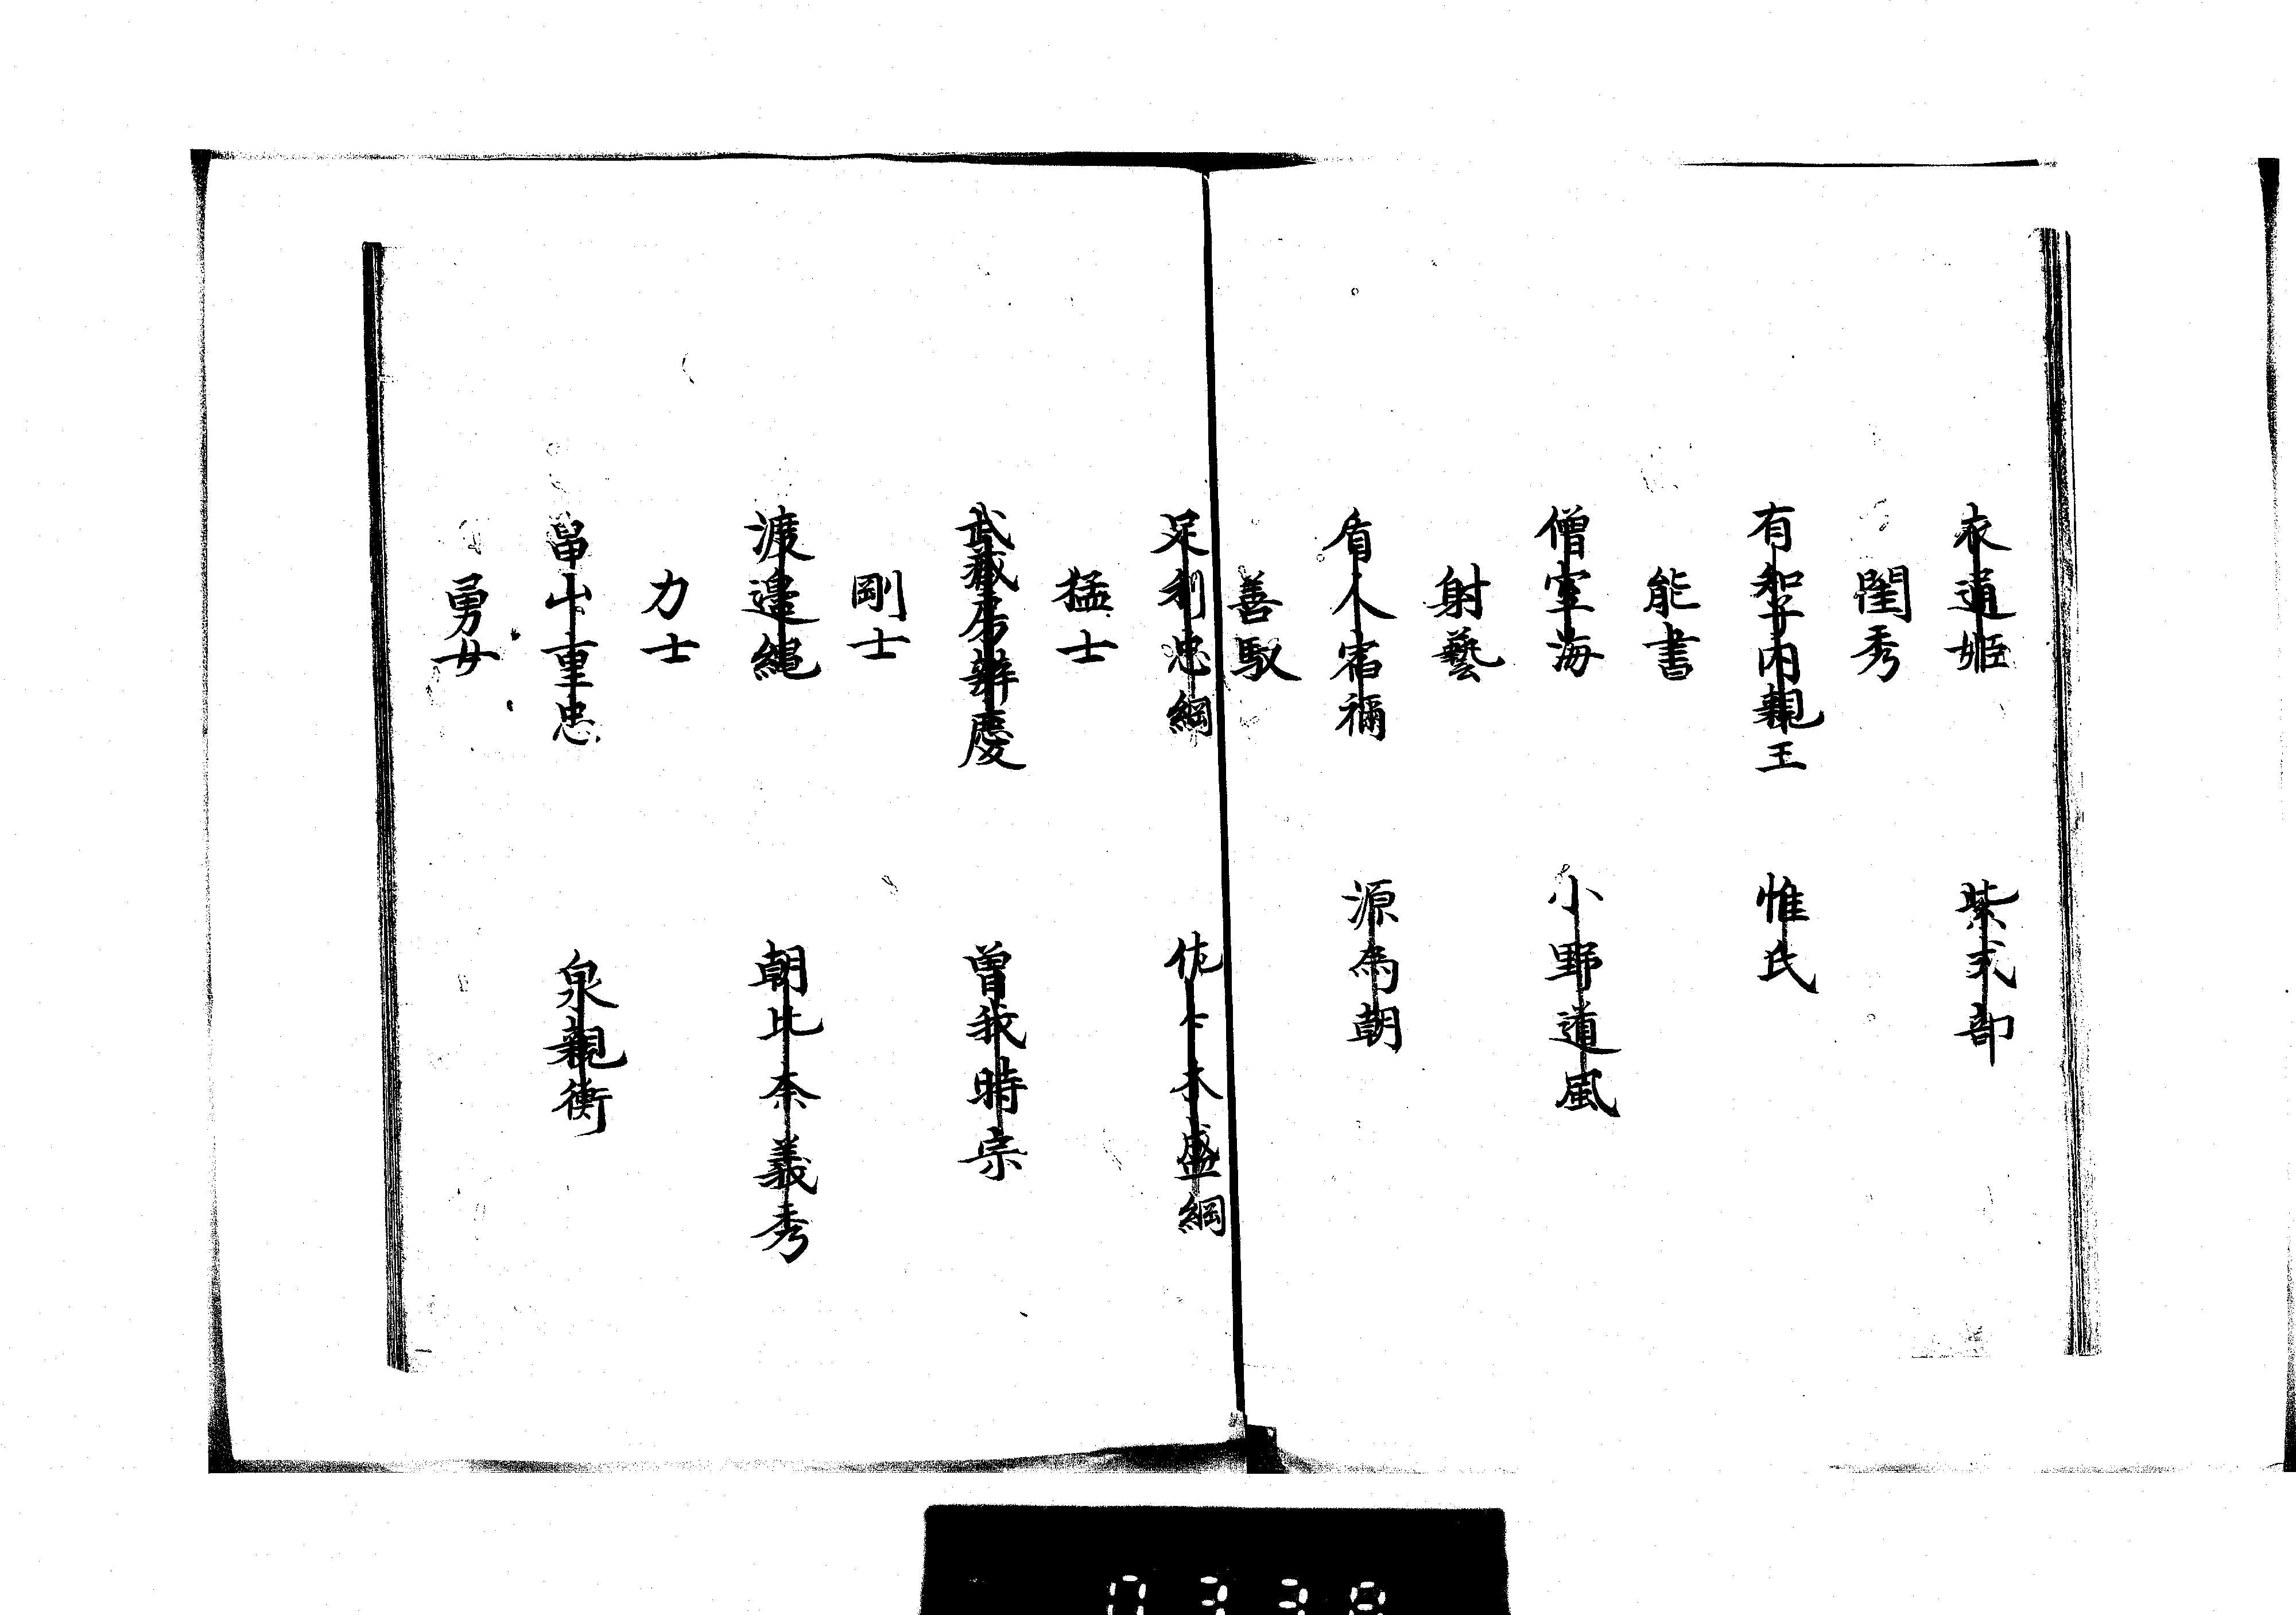 衣通姫　紫式部
閨秀
有知子内親王　惟氏
能書
僧空海　小野道風
射藝
盾人宿禰　源為朝
善馭
足利忠綱　佐々木盛綱
猛士
武蔵房辨慶　曽我時宗
剛士
渡邉縄　朝比奈義秀
力士
畠山重忠　泉親衡
勇女